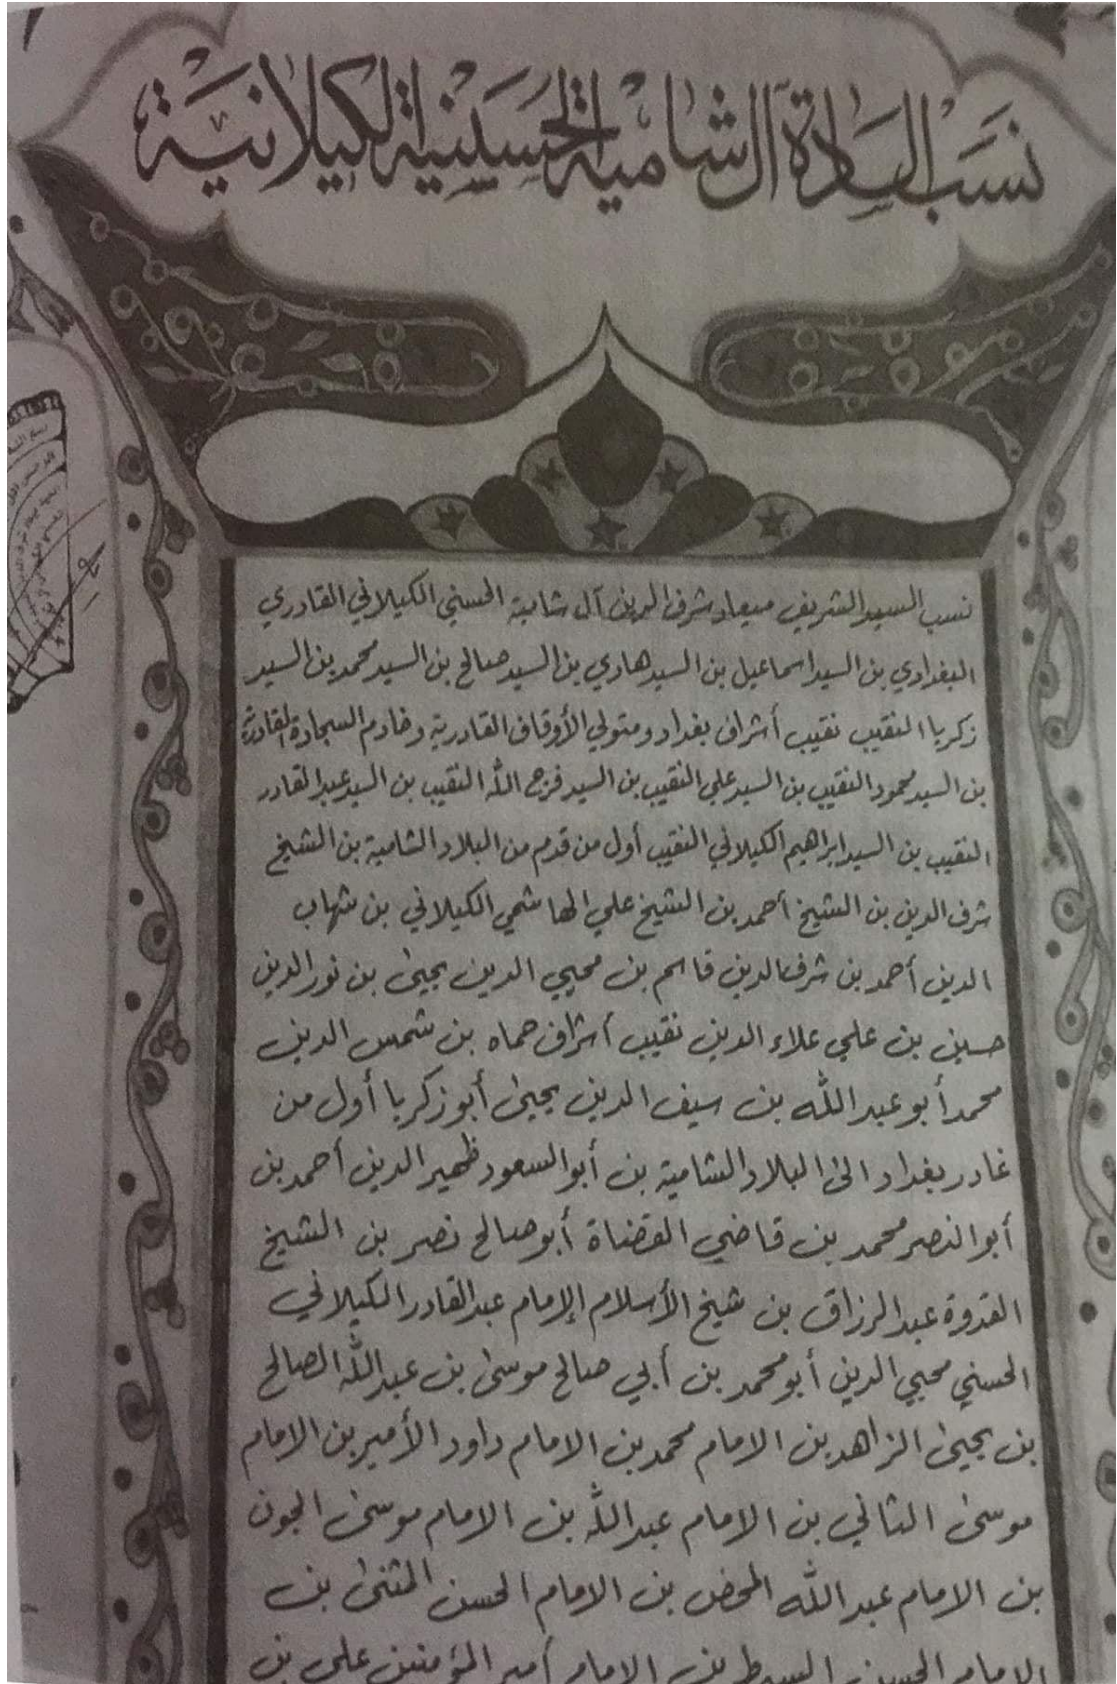 نسب السادة آل شامية الحسنية الكيلانية
نسب السيد الشريف ميعاد شرف الدين آل شامية الحسني الكيلاني القادري
البغدادي بن السيد اسماعيل بن السيد هادي بن السيد صالح بن السيد محمد بن السيد
زكريا النقيب نقيب أشراف بغداد ومتولي الأوقاف القادرية وخادم السجادة القادرية
بن السيد محمود النقيب بن السيد علي النقيب بن السيد فرج الله النقيب بن السيد عبد القادر
النقيب بن السيد ابراهيم الكيلاني النقيب أول من قدم من البلاد الشامية بن الشيخ
شرف الدين بن الشيخ أحمد بن الشيخ علي الهاشمي الكيلاني بن شهاب
الدين أحمد بن شرف الدين قاسم بن محيي الدين يحيى بن نور الدين
حسين بن علي علاء الدين نقيب أشراف حماه بن شمس الدين
محمد أبو عبد الله بن سيف الدين يحيى أبو زكريا أول من
غادر بغداد الى البلاد الشامية بن أبو السعود ظهير الدين أحمد بن
أبو النصر محمد بن قاضي القضاة أبو صالح نصر بن الشيخ
القدوة عبد الرزاق بن شيخ الأسلام الإمام عبد القادر الكيلاني
الحسني محيي الدين أبو محمد بن أبي صالح موسى بن عبد الله الصالح
بن يحيى الزاهد بن الامام محمد بن الامام داود الأمير بن الامام
موسى الثاني بن الامام عبد الله بن الامام موسى الجون
بن الامام عبد الله المحض بن الامام الحسن المثنى بن
الامام الحسن السبط بن الامام أمير المؤمنين علي بن